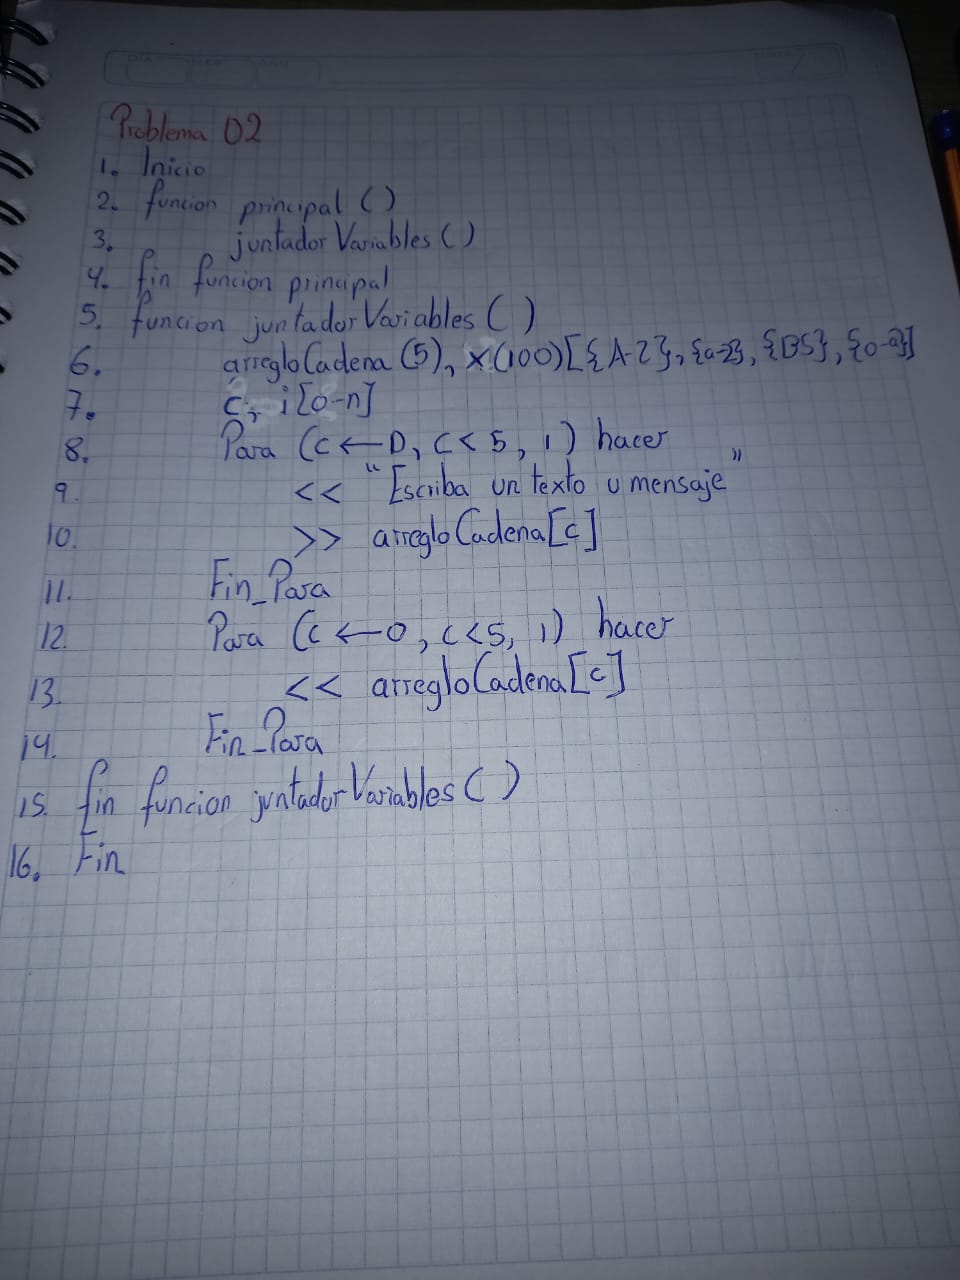 Problema 02
1. Inicio
2. funcion principal ( )
3. juntador Variables ( )
4. fin funcion principal
5. funcion juntador Variables ( )
6. arregloCadena (5), x (100) [{A-Z}, {a-z}, {BS}, {0-9}]
7. c, i [0-n]
8. Para (c ← 0, c < 5, 1) hacer
9. << "Escriba un texto u mensaje"
10. >> arregloCadena[c]
11. Fin_Para
12. Para (c ← 0, c < 5, 1) hacer
13. << arregloCadena[c]
14. Fin_Para
15. fin funcion juntador Variables ( )
16. Fin